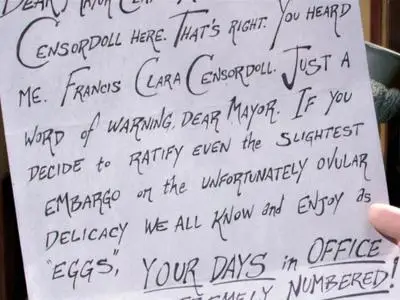 DEAR MAYOR
CENSORDOLL HERE. THAT'S RIGHT. YOU HEARD
ME. FRANCIS CLARA CENSORDOLL. JUST A
WORD of WARNING, DEAR MAYOR. IF YOU
DECIDE to RATIFY EVEN the SLIGHTEST
EMBARGO on the UNFORTUNATELY OVULAR
DELICACY WE ALL KNOW and ENJOY as
"EGGS", YOUR DAYS in OFFICE
NUMBERED!